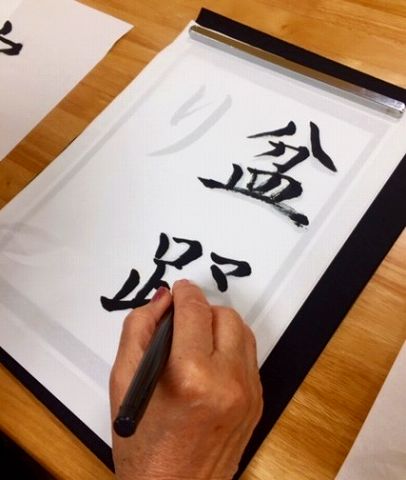 盆踊
り